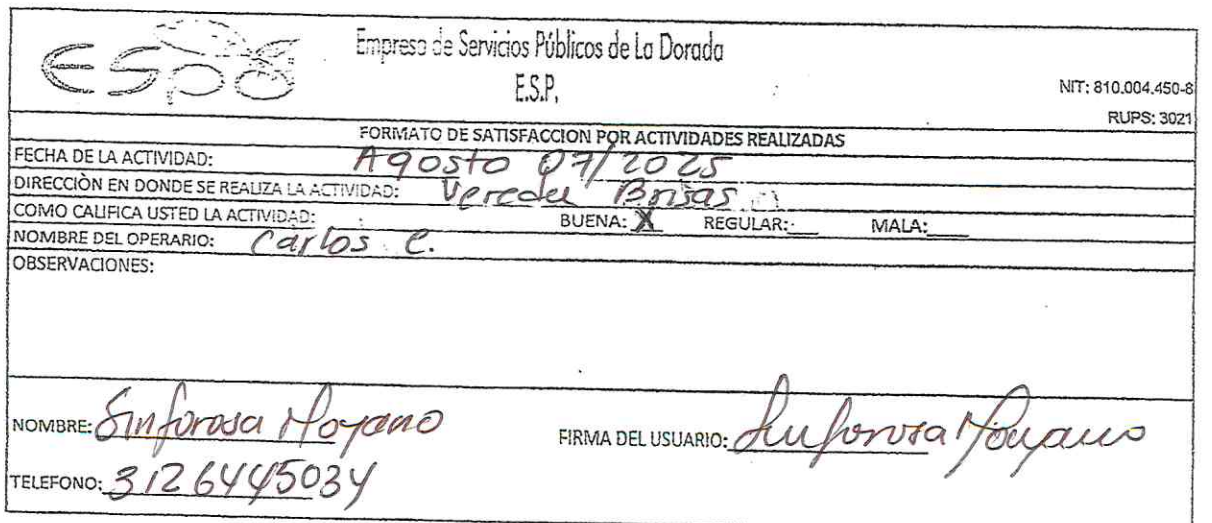 espo
Empresa de Servicios Públicos de La Dorada
E.S.P.
NIT: 810.004.450-8
RUPS: 3021
FORMATO DE SATISFACCION POR ACTIVIDADES REALIZADAS
FECHA DE LA ACTIVIDAD: Agosto 07/2025
DIRECCIÒN EN DONDE SE REALIZA LA ACTIVIDAD: Vereda Brisas
COMO CALIFICA USTED LA ACTIVIDAD: BUENA: X REGULAR: MALA:
NOMBRE DEL OPERARIO: Carlos C.
OBSERVACIONES:
NOMBRE: Sinforosa Moyano FIRMA DEL USUARIO: Sinforosa Moyano
TELEFONO: 3126445034